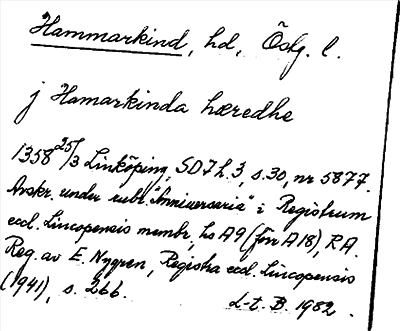 Hammarkind, hd, Östg. l.
j Hamarkinda hæredhe
1358 25/3 Linköping, SD 7 h. 3, s. 30, nr 5877.
Avskr. under rubr. "Anniversaria" i Registrum
eccl. Lincopensis membr., hs A9 (förr A 18), RA.
Reg. av E. Nygren, Registra eccl. Lincopensis
(1941), s. 266.
L-t. B. 1982.